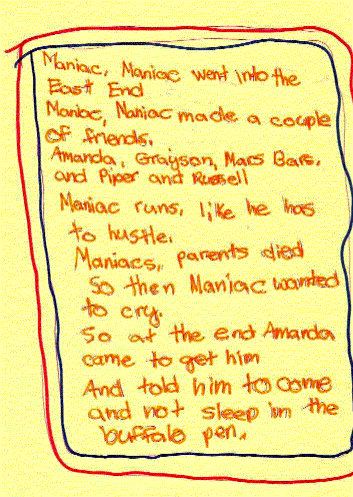 Maniac, Maniac went into the
East End
Maniac, Maniac made a couple
of friends.
Amanda, Grayson, Mars Bars,
and Piper and Russell
Maniac runs, like he has
to hustle.
Maniacs, parents died
So then Maniac wanted
to cry.
So at the end Amanda
came to get him
And told him to come
and not sleep in the
buffalo pen.